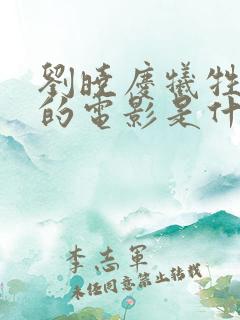 劉曉慶犧牲
的電影是什
李志軍
未经同意禁止转载